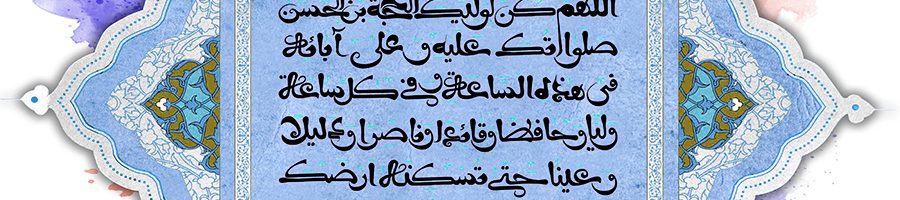 اللهم كن لوليك الحجة بن الحسن
صلواتك عليه و على آبائه
في هذه الساعة و في كل ساعة
وليا و حافظا و قائدا و ناصرا و دليلا
و عينا حتى تسكنه ارضك